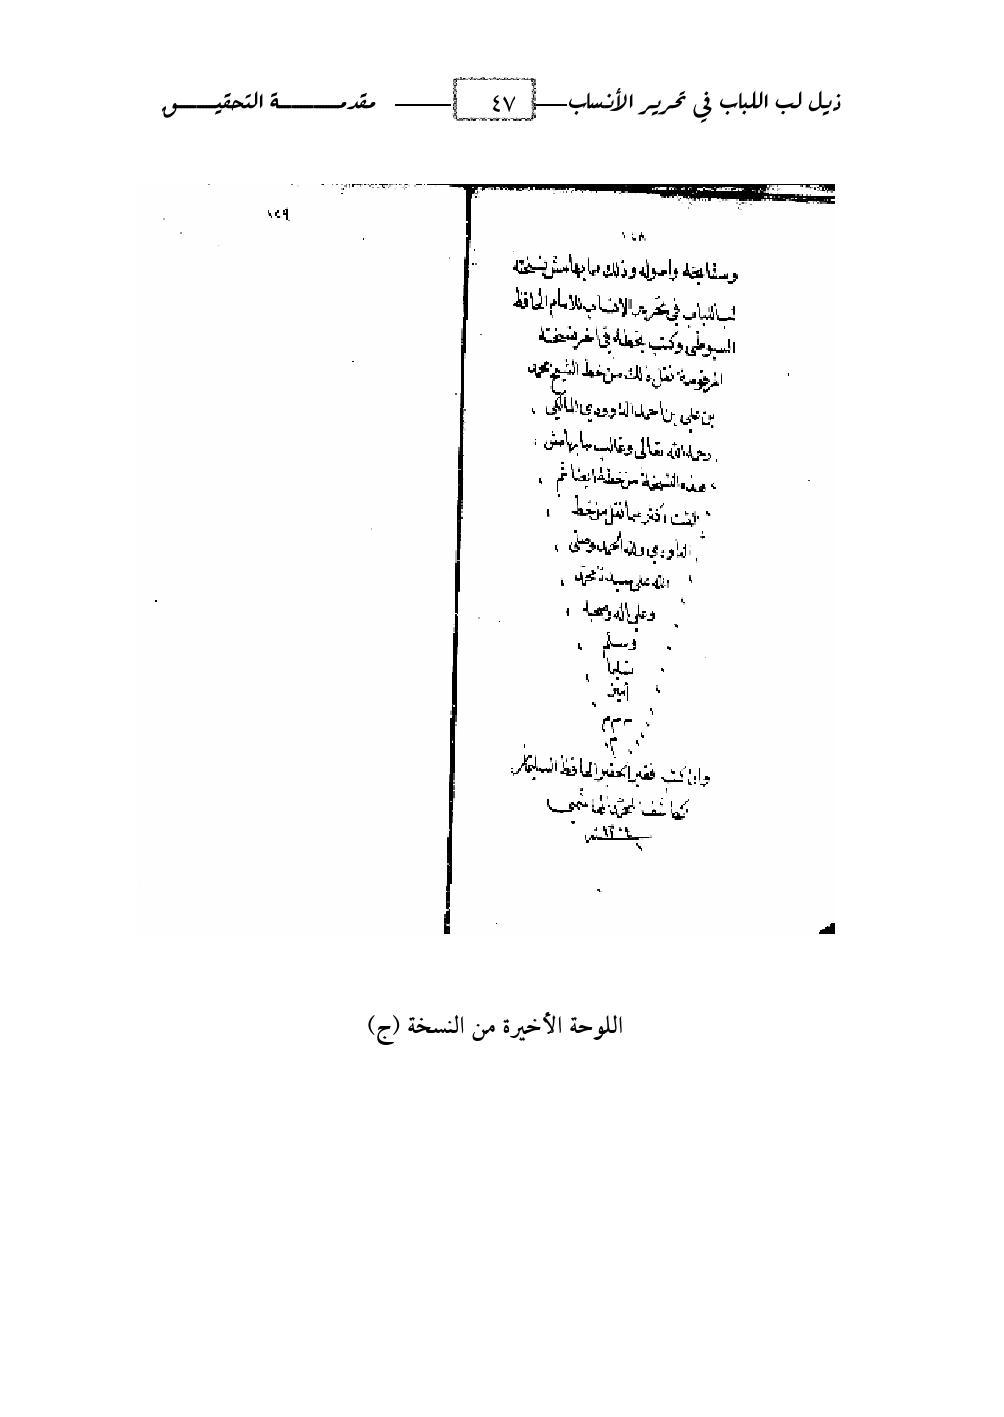 ذيل لب اللباب في تحرير الأنساب ٤٧ مقدمة التحقيق
١٤٩
١٤٨
ومشايخه واصوله وذلك مما بهامش نسخته
لب اللباب في تحرير الانساب للامام الحافظ
السيوطي وكتب بخطه في اخر نسخته
المرقومة نقل ذلك من خط الشيخ محمد
بن علي بن احمد الداوودي المالكي
رحمه الله تعالى وغالب ما بهامش
هذه النسخة من خطه ايضا ثم
اكثر مما نقل من خط
الداودي ولله الحمد وصلى
الله على سيدنا محمد
وعلى اله وصحبه
وسلم
تسليما
امين
م م م
م
وانا كتب فقير الحقير الحافظ السليمان
اللوحة الأخيرة من النسخة (ج)